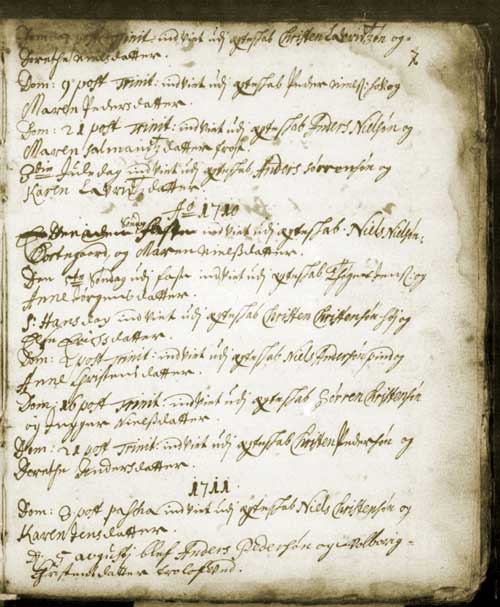 post Trinit: indviet udj ægteskab Christen Lavritzøn og
7
Dorethe Nielsdatter.
Dom: 9 post Trinit: indviet udj ægteskab Peder Nielss: og
Maren Pedersdatter.
Dom: 21 post Trinit: indviet udj ægteskab Anders Nielsøn og
Maren Salmandsdatter
Juledag indviet udj ægteskab Anders Sørrensøn og
Karen Lavritzdatter.
Ao 1710
Søndag faste indviet udj ægteskab Niels Nielsøn
og Maren Nielsdatter.
Den Søndag udj faste indviet udj ægteskab Jenss: og
Anne datter.
S: Hansdag indviet udj ægteskab Christen Christensøn og
Else datter.
Dom: 2 post Trinit: indviet udj ægteskab Niels Andersøn og
Anne Christensdatter.
Dom: 16 post Trinit: indviet udj ægteskab Sørren Christensøn
og Nielsdatter.
Dom: 21 post Trinit: indviet udj ægteskab Christen Pedersøn og
Dorethe Andersdatter.
1711
Dom: 3 post pascha indviet udj ægteskab Niels Christensøn og
Karen Jensdatter.
5 augusti blef Anders Pedersøn og Wolborig
Christensdatter trolofved.